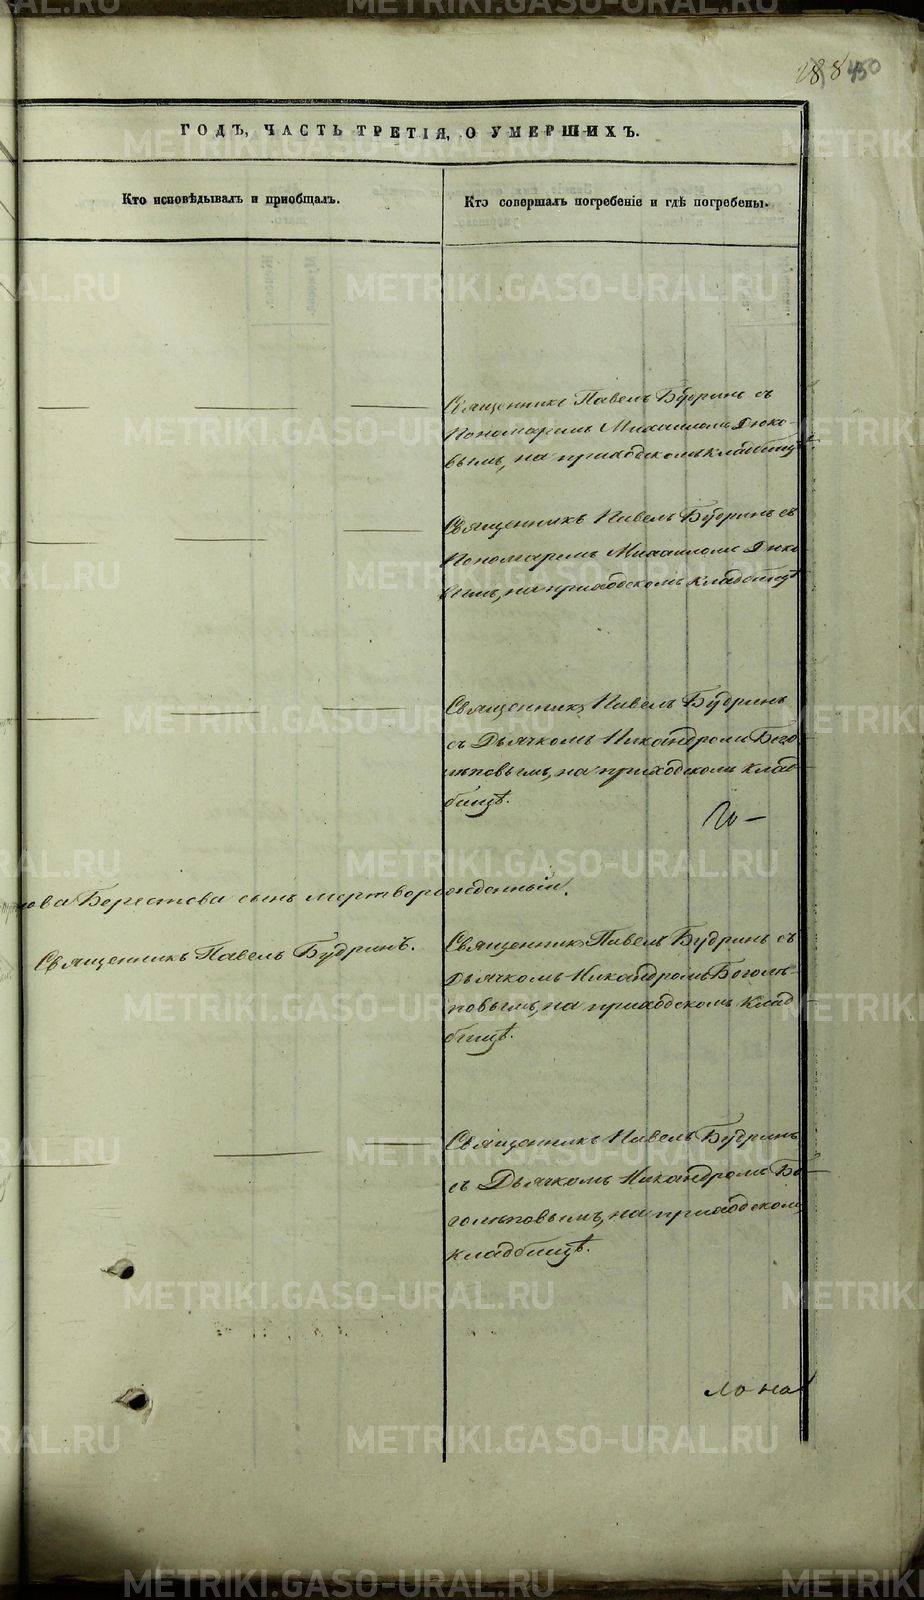 450
ГОДЪ, ЧАСТЬ ТРЕТІЯ, О УМЕРШИХЪ.
Кто исповѣдывалъ и пріобщалъ.
Кто совершалъ погребеніе и гдѣ погребены.
Священникъ Павелъ Будринъ съ
Пономаремъ Михаиломъ Дюко-
вымъ, на приходскомъ кладбищѣ.
Священникъ Павелъ Будринъ съ
Пономаремъ Михаиломъ Дюко
вымъ, на приходскомъ кладбищѣ
Священникъ Павелъ Будринъ
съ Дьячкомъ Никандромъ Бого
лѣповымъ, на приходскомъ клад-
бищѣ.
Берестова сынъ мертворожденный.
Священникъ Павелъ Будринъ.
Священникъ Павелъ Будринъ съ
Дьячкомъ Никандромъ Боголѣ-
повымъ, на приходскомъ клад
бищѣ.
Священникъ Павелъ Будринъ
съ Дьячкомъ Никандромъ Бо
голѣповымъ, на приходскомъ
кладбищѣ.
METRIKI.GASO-URAL.RU